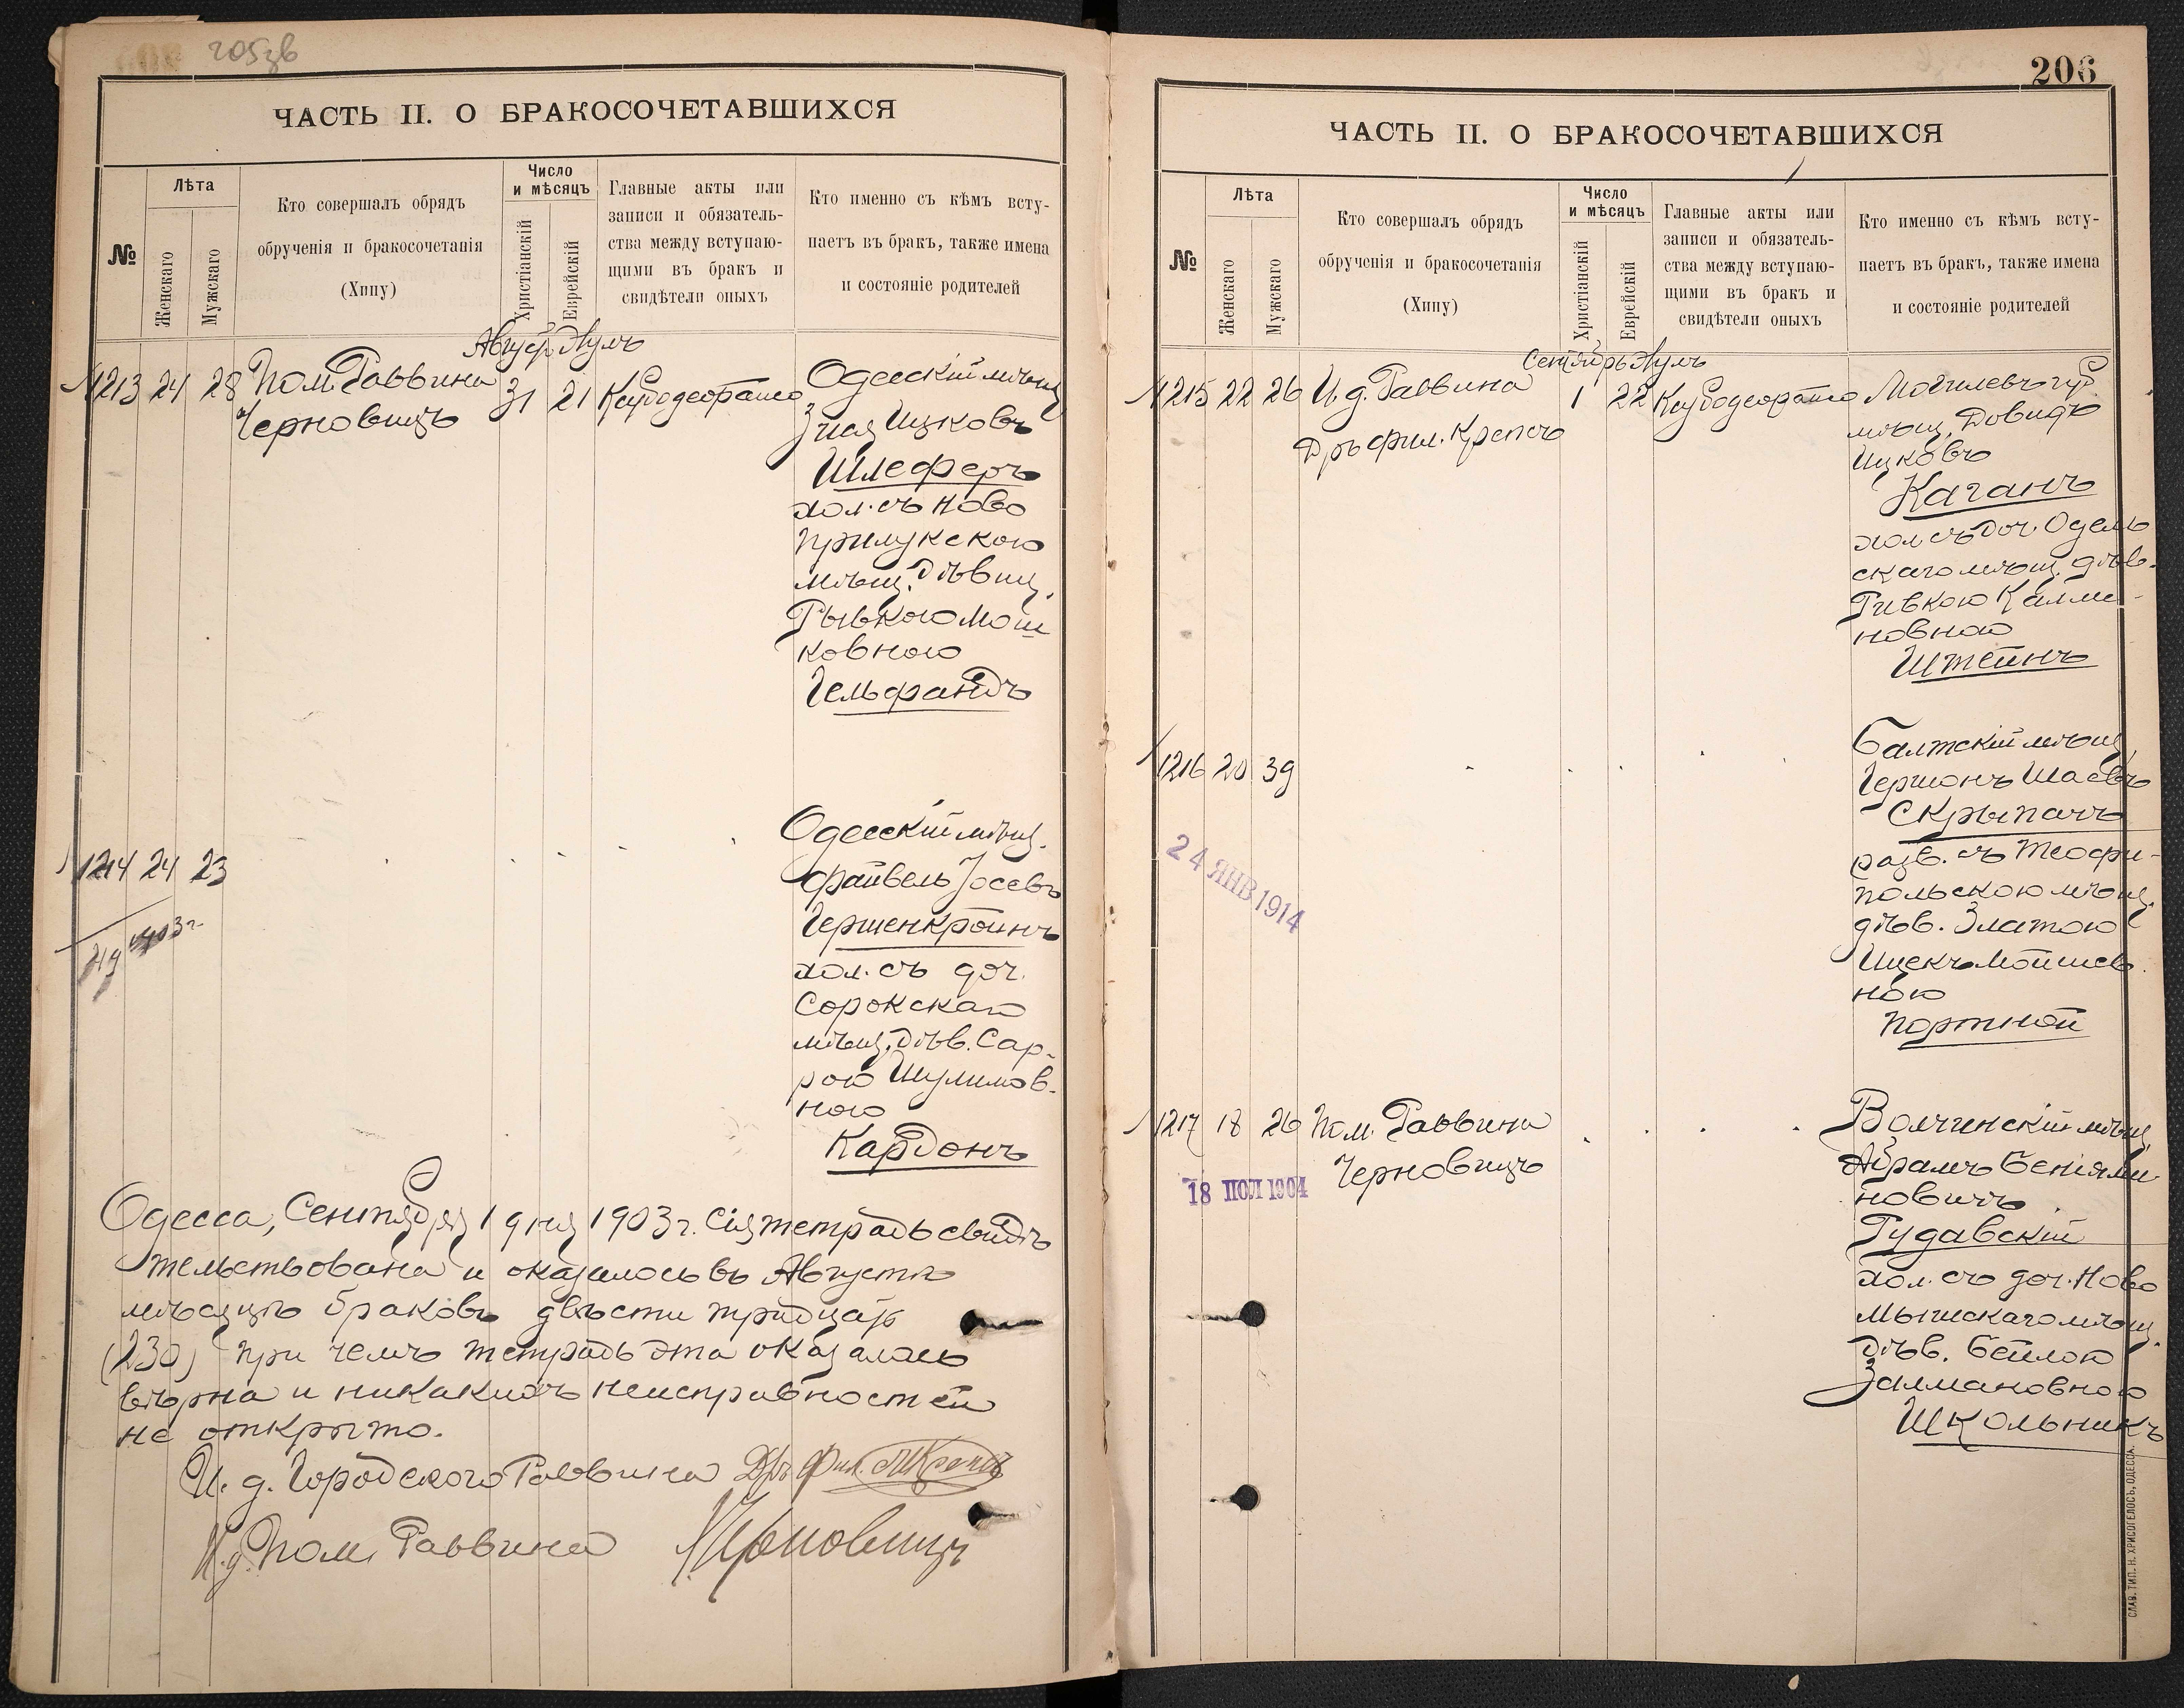 205зв
ЧАСТЬ II. О БРАКОСОЧЕТАВШИХСЯ
№
Лѣта
Женскаго
Мужскаго
Кто совершалъ обрядъ
обрученія и бракосочетанія
(Хипу)
Число
и мѣсяцъ
Христіанскій
Еврейскій
Главные акты или
записи и обязатель-
ства между вступаю-
щими въ бракъ и
свидѣтели оныхъ
Кто именно съ кѣмъ всту-
паетъ въ бракъ, также имена
и состояніе родителей
Август Эулъ
1213 24 28 Пом. Раввина 31 21 Одесскій мѣщ
Черновицъ
Ицковъ
Шлеферъ
хол. съ Ново
прилукскою
мѣщ. дѣвиц.
Рывкою Мош
ковною
Гельфандъ
1214 24 23
Одесскій мѣщ.
Файвель Іосевъ
Гершенкройнъ
хол. съ доч.
Сорокскаго
мѣщ. дѣв. Сар-
рою Шулимов-
ною
Кардонъ
Одесса, Сентября 1 дня 1903 г. Сія тетрадь свидѣ
тельствована и оказалось въ Августѣ
мѣсяцѣ браковъ двѣсти тридцать
(230) при чемъ тетрадь эта оказалась
вѣрна и никакихъ неисправностей
не открыто.
И. д. Городского Раввина Дръ Фил. Крепсъ
И. д. Пом. Раввина Черновицъ
206
ЧАСТЬ II. О БРАКОСОЧЕТАВШИХСЯ
№
Лѣта
Женскаго
Мужскаго
Кто совершалъ обрядъ
обрученія и бракосочетанія
(Хипу)
Число
и мѣсяцъ
Христіанскій
Еврейскій
Главные акты или
записи и обязатель-
ства между вступаю-
щими въ бракъ и
свидѣтели оныхъ
Кто именно съ кѣмъ всту-
паетъ въ бракъ, также имена
и состояніе родителей
Сентябрь Эулъ
1215 22 26 И. д. Раввина 1 22 Могилевъ губ
Дръ фил. Крепсъ
мѣщ. Довидъ
Ицковъ
Каганъ
хол съ доч. Одель
скаго мѣщ. дѣв.
Ривкою Калма-
новною
Штейнъ
1216 20 39
Балтскій мѣщ.
Гершонъ Шаевъ
Скрыпачъ
разв. съ Теофи-
польскою мѣщ.
дѣв. Златою
Ицекъ Мойшев
ною
Портной
24 ЯНВ 1914
1217 18 26 Пом. Раввина
Черновицъ
Волчинскій мѣщ
Абрамъ Беніями
новичъ
Гудавскій
хол. съ доч. Ново
Мышскаго мѣщ.
дѣв. Бейлою
Залмановною
Школьникъ
18 ІЮЛ 1904
СЛАВ. ТИП. Н. ХРИСОГЕЛОСЪ, ОДЕССА.